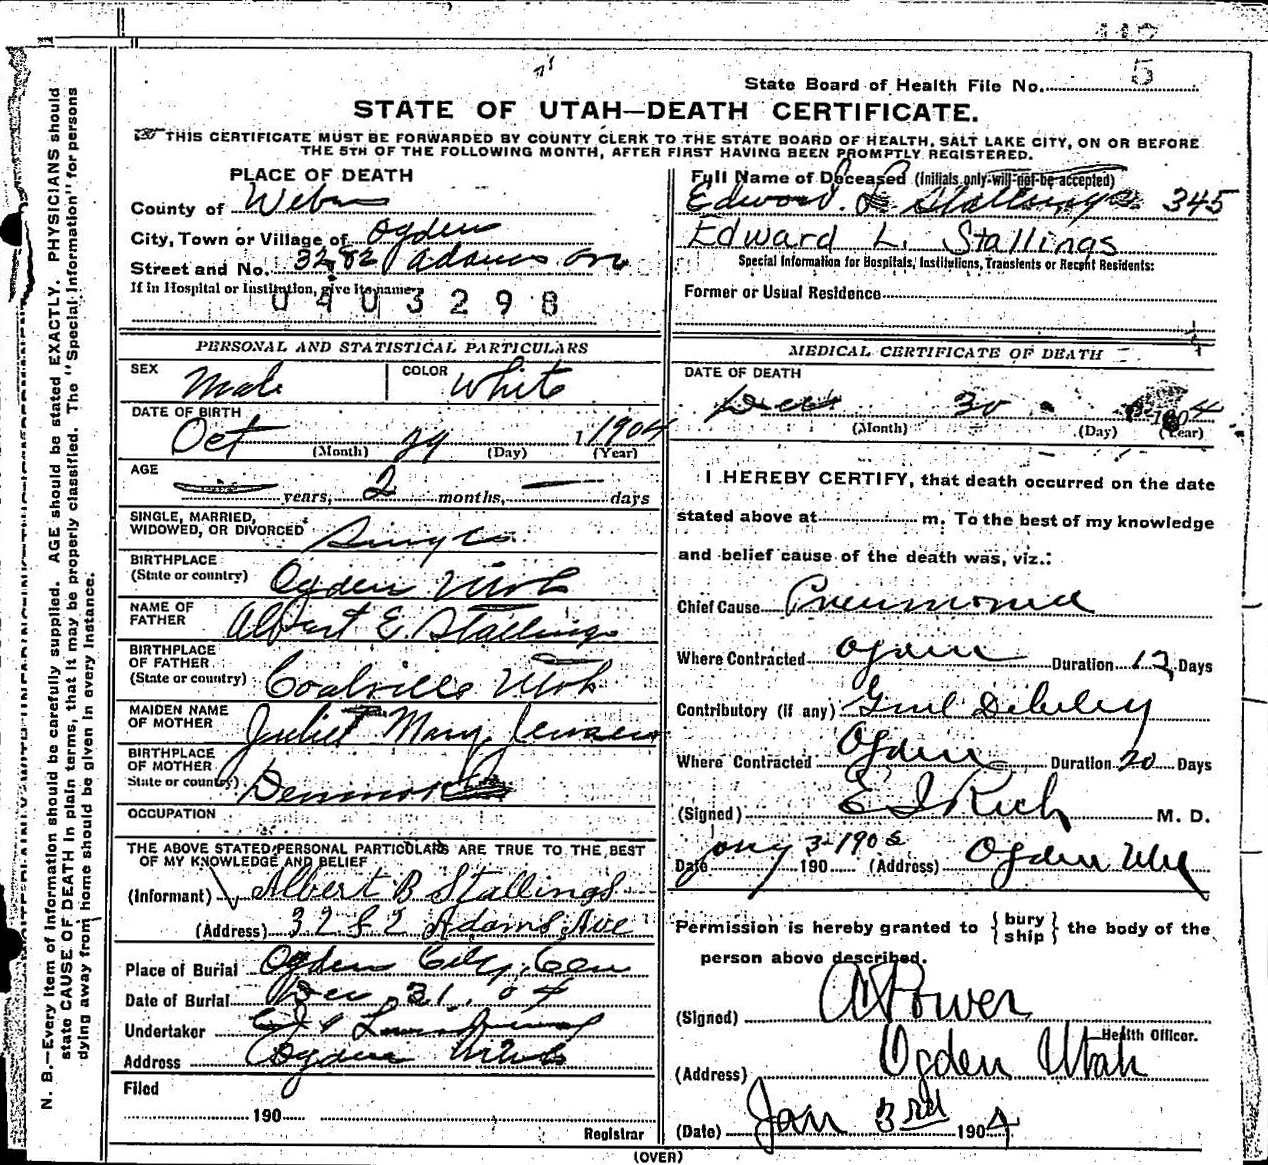 5
State Board of Health File No.
STATE OF UTAH—DEATH CERTIFICATE.
THIS CERTIFICATE MUST BE FORWARDED BY COUNTY CLERK TO THE STATE BOARD OF HEALTH, SALT LAKE CITY, ON OR BEFORE
THE 5TH OF THE FOLLOWING MONTH, AFTER FIRST HAVING BEEN PROMPTLY REGISTERED.
PLACE OF DEATH
County of Weber
City, Town or Village of Ogden
Street and No. 3282 Adams Ave
If in Hospital or Institution, give its name
0403298
Full Name of Deceased (Initials only will not be accepted)
Edward L Stallings 345
Edward L. Stallings
Special Information for Hospitals, Institutions, Transients or Recent Residents:
Former or Usual Residence
PERSONAL AND STATISTICAL PARTICULARS
SEX Male COLOR White
DATE OF BIRTH
Oct 29 1904
(Month) (Day) (Year)
AGE
years, 2 months, days
SINGLE, MARRIED,
WIDOWED, OR DIVORCED Single
BIRTHPLACE
(State or country) Ogden Utah
NAME OF
FATHER Albert E. Stallings
BIRTHPLACE
OF FATHER
(State or country) Coalville Utah
MAIDEN NAME
OF MOTHER Juliet Mary Jensen
BIRTHPLACE
OF MOTHER
State or country) Denmark
OCCUPATION
THE ABOVE STATED PERSONAL PARTICULARS ARE TRUE TO THE BEST
OF MY KNOWLEDGE AND BELIEF
(Informant) Albert B Stallings
(Address) 3282 Adams Ave
Place of Burial Ogden City Cem
Date of Burial Dec 31, 04
Undertaker
Address Ogden Utah
Filed
190
Registrar
MEDICAL CERTIFICATE OF DEATH
DATE OF DEATH
Dec 30 1904
(Month) (Day) (Year)
I HEREBY CERTIFY, that death occurred on the date
stated above at m. To the best of my knowledge
and belief cause of the death was, viz.:
Chief Cause Pneumonia
Where Contracted Ogden Duration 12 Days
Contributory (if any) Genl Debility
Where Contracted Ogden Duration 20 Days
(Signed) E I Rich M. D.
Date Jany 3-1905 190 (Address) Ogden Utah
Permission is hereby granted to { bury ship } the body of the
person above described.
(Signed) A Power
Health Officer.
(Address) Ogden Utah
(Date) Jan 3rd 1904
(OVER)
N. B.—Every item of information should be carefully supplied. AGE should be stated EXACTLY. PHYSICIANS should
state CAUSE OF DEATH in plain terms, that it may be properly classified. The "Special Information" for persons
dying away from home should be given in every instance.